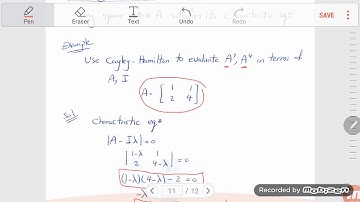 Pen
Eraser
Text
Undo
Redo
Example
Use Cayley-Hamilton to evaluate A³, A⁴ in terms of
A, I
A = [ 1 1
2 4 ]
Sol
Charactristic eqn
|A - Iλ| = 0
| 1-λ 1
2 4-λ | = 0
(1-λ)(4-λ) - 2 = 0
11 / 12
RECORDED WITH
MOBIZEN